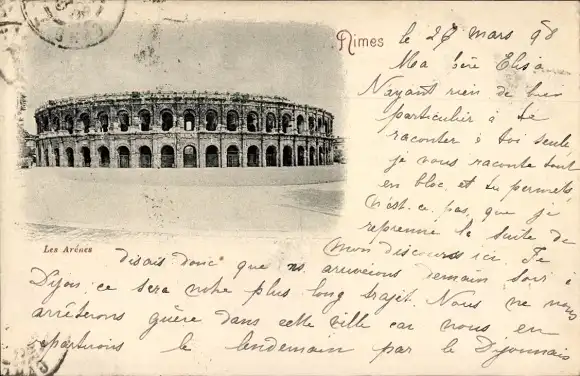 Nîmes le 27 mars 98
Ma chère Elisa
N'ayant rien de bien
particulier à te
raconter à toi seule,
je vous raconte tout
en bloc, et tu permets,
n'est-ce pas, que je
reprenne la suite de
mon discours ici. Je
Les Arènes
disais donc que ns. arriverions demain soir à
Dijon. ce sera notre plus long trajet. Nous ne nous
arrêterons guère dans cette ville car nous en
repartirons le lendemain par le Dijonnais